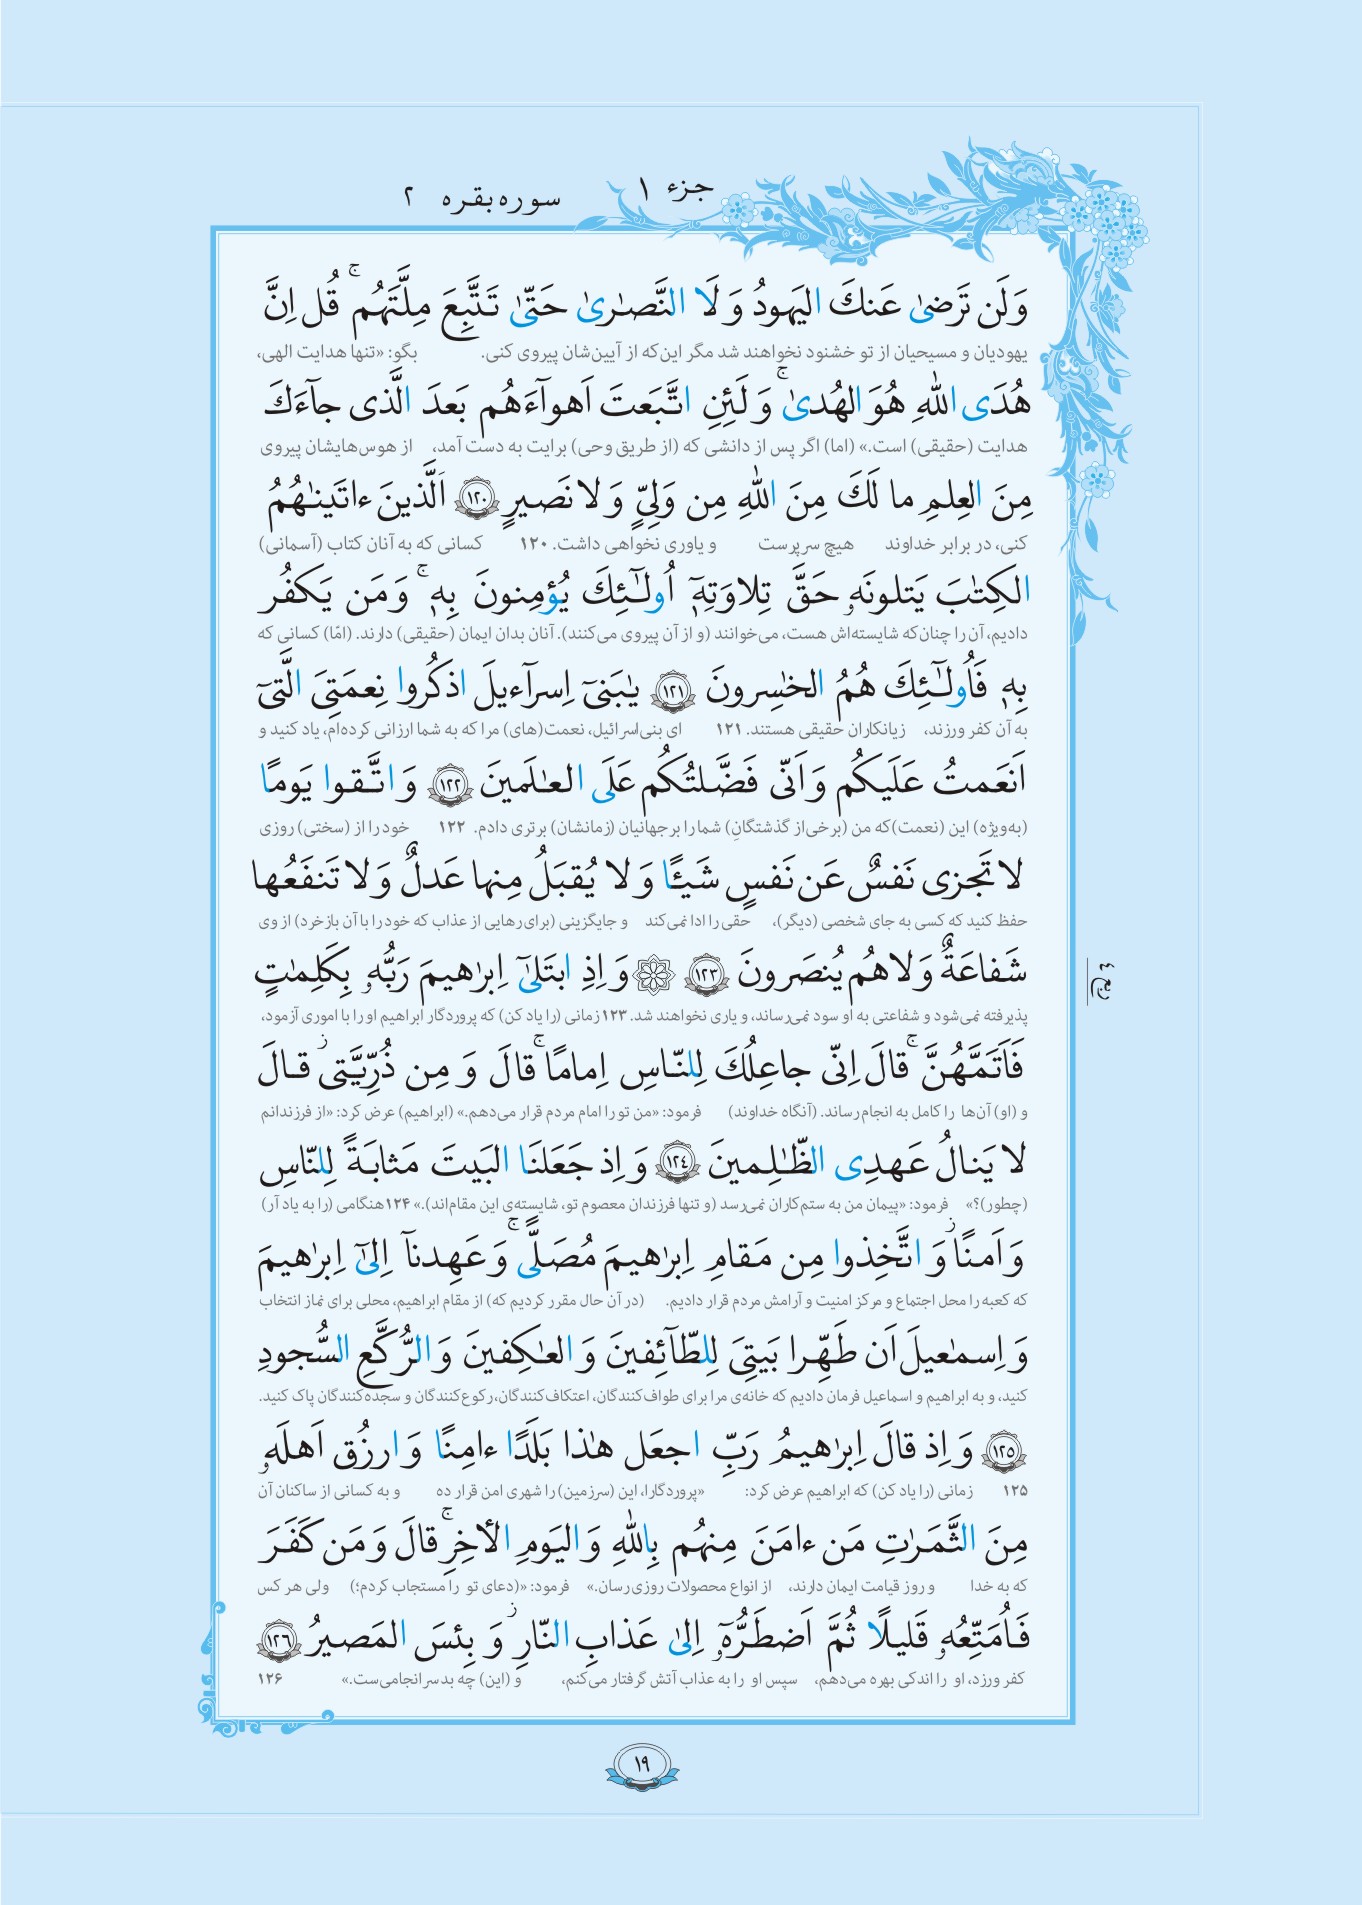 جزء ۱
سوره بقره ۲
وَلَن تَرضىٰ عَنكَ اليَهودُ وَ لَا النَّصـٰرىٰ حَتّىٰ تَتَّبِعَ مِلَّتَهُم ۚ قُل اِنَّ
یهودیان و مسیحیان از تو خشنود نخواهند شد مگر این‌که از آیین‌شان پیروی کنی. بگو: «تنها هدایت الهی،
هُدَى اللّٰهِ هُوَ الهُدىٰ ۚ وَ لَئِنِ اتَّبَعتَ اَهوآءَهُم بَعدَ الَّذى جآءَكَ
هدایت (حقیقی) است.» (اما) اگر پس از دانشی که (از طریق وحی) برایت به دست آمد، از هوس‌هایشان پیروی
مِنَ العِلمِ ما لَكَ مِنَ اللّٰهِ مِن وَلِىٍّ وَ لا نَصيرٍ ﴿١٢٠﴾ اَلَّذينَ ءاتَينـٰهُمُ
کنی، در برابر خداوند هیچ سرپرست و یاوری نخواهی داشت. ۱۲۰ کسانی که به آنان کتاب (آسمانی)
الكِتـٰبَ يَتلونَهۥ حَقَّ تِلاوَتِهٖٓ اُولـٰٓئِكَ يُؤمِنونَ بِهٖ ۚ وَ مَن يَكفُر
دادیم، آن را چنان‌که شایسته‌اش هست، می‌خوانند (و از آن پیروی می‌کنند). آنان بدان ایمان (حقیقی) دارند. (امّا) کسانی که
بِهٖ فَاُولـٰٓئِكَ هُمُ الخـٰسِرونَ ﴿١٢١﴾ يـٰبَنىٓ اِسرآءيلَ اذكُروا نِعمَتِىَ الَّتىٓ
به آن کفر ورزند، زیانکاران حقیقی هستند. ۱۲۱ ای بنی‌اسرائیل، نعمت(های) مرا که به شما ارزانی کرده‌ام، یاد کنید و
اَنعَمتُ عَلَيكُم وَ اَنّى فَضَّلتُكُم عَلَى العـٰلَمينَ ﴿١٢٢﴾ وَ اتَّقوا يَومًا
(به‌ویژه) این (نعمت)که من (برخی‌از گذشتگانِ) شما را بر جهانیان (زمانشان) برتری دادم. ۱۲۲ خود را از (سختی) روزی
لا تَجزى نَفسٌ عَن نَفسٍ شَيـًٔا وَ لا يُقبَلُ مِنها عَدلٌ وَ لا تَنفَعُها
حفظ کنید که کسی به جای شخصی (دیگر)، حقی را ادا نمی‌کند و جایگزینی (برای رهایی از عذاب که خود را با آن بازخرد) از وی
شَفاعَةٌ وَ لا هُم يُنصَرونَ ﴿١٢٣﴾ ۞ وَ اِذِ ابتَلىٰٓ اِبرٰهيمَ رَبُّهۥ بِكَلِمـٰتٍ
پذیرفته نمی‌شود و شفاعتی به او سود نمی‌رساند، و یاری نخواهند شد. ۱۲۳ زمانی (را یاد کن) که پروردگار ابراهیم او را با اموری آزمود،
فَاَتَمَّهُنَّ ۚ قالَ اِنّى جاعِلُكَ لِلنّاسِ اِمامًا ۚ قالَ وَ مِن ذُرِّيَّتى ز قالَ
و (او) آن‌ها را کامل به انجام رساند. (آنگاه خداوند) فرمود: «من تو را امام مردم قرار می‌دهم.» (ابراهیم) عرض کرد: «از فرزندانم
لا يَنالُ عَهدِى الظّـٰلِمينَ ﴿١٢٤﴾ وَ اِذ جَعَلنَا البَيتَ مَثابَةً لِلنّاسِ
(چطور)؟» فرمود: «پیمان من به ستم‌کاران نمی‌رسد (و تنها فرزندان معصوم تو، شایسته‌ی این مقام‌اند).» ۱۲۴ هنگامی (را به یاد آر)
وَ اَمنًا ز وَ اتَّخِذوا مِن مَقامِ اِبرٰهيمَ مُصَلًّى ۚ وَ عَهِدنآ اِلىٰٓ اِبرٰهيمَ
که کعبه را محل اجتماع و مرکز امنیت و آرامش مردم قرار دادیم. (در آن حال مقرر کردیم که) از مقام ابراهیم، محلی برای نماز انتخاب
وَ اِسمـٰعيلَ اَن طَهِّرا بَيتِىَ لِلطّآئِفينَ وَ العـٰكِفينَ وَ الرُّكَّعِ السُّجودِ
کنید، و به ابراهیم و اسماعیل فرمان دادیم که خانه‌ی مرا برای طواف‌کنندگان، اعتکاف‌کنندگان، رکوع‌کنندگان و سجده‌کنندگان پاک کنید.
﴿١٢٥﴾ وَ اِذ قالَ اِبرٰهيمُ رَبِّ اجعَل هـٰذا بَلَدًا ءامِنًا وَ ارزُق اَهلَهۥ
۱۲۵ زمانی (را یاد کن) که ابراهیم عرض کرد: «پروردگارا، این (سرزمین) را شهری امن قرار ده و به کسانی از ساکنان آن
مِنَ الثَّمَرٰتِ مَن ءامَنَ مِنهُم بِاللّٰهِ وَ اليَومِ الأخِرِ ۚ قالَ وَ مَن كَفَرَ
که به خدا و روز قیامت ایمان دارند، از انواع محصولات روزی رسان.» فرمود: «(دعای تو را مستجاب کردم؛) ولی هر کس
فَاُمَتِّعُهۥ قَليلًا ثُمَّ اَضطَرُّهۥٓ اِلىٰ عَذابِ النّارِ ز وَ بِئسَ المَصيرُ ﴿١٢٦﴾
کفر ورزد، او را اندکی بهره می‌دهم، سپس او را به عذاب آتش گرفتار می‌کنم، و (این) چه بد سرانجامی‌ست.» ۱۲۶
١٩